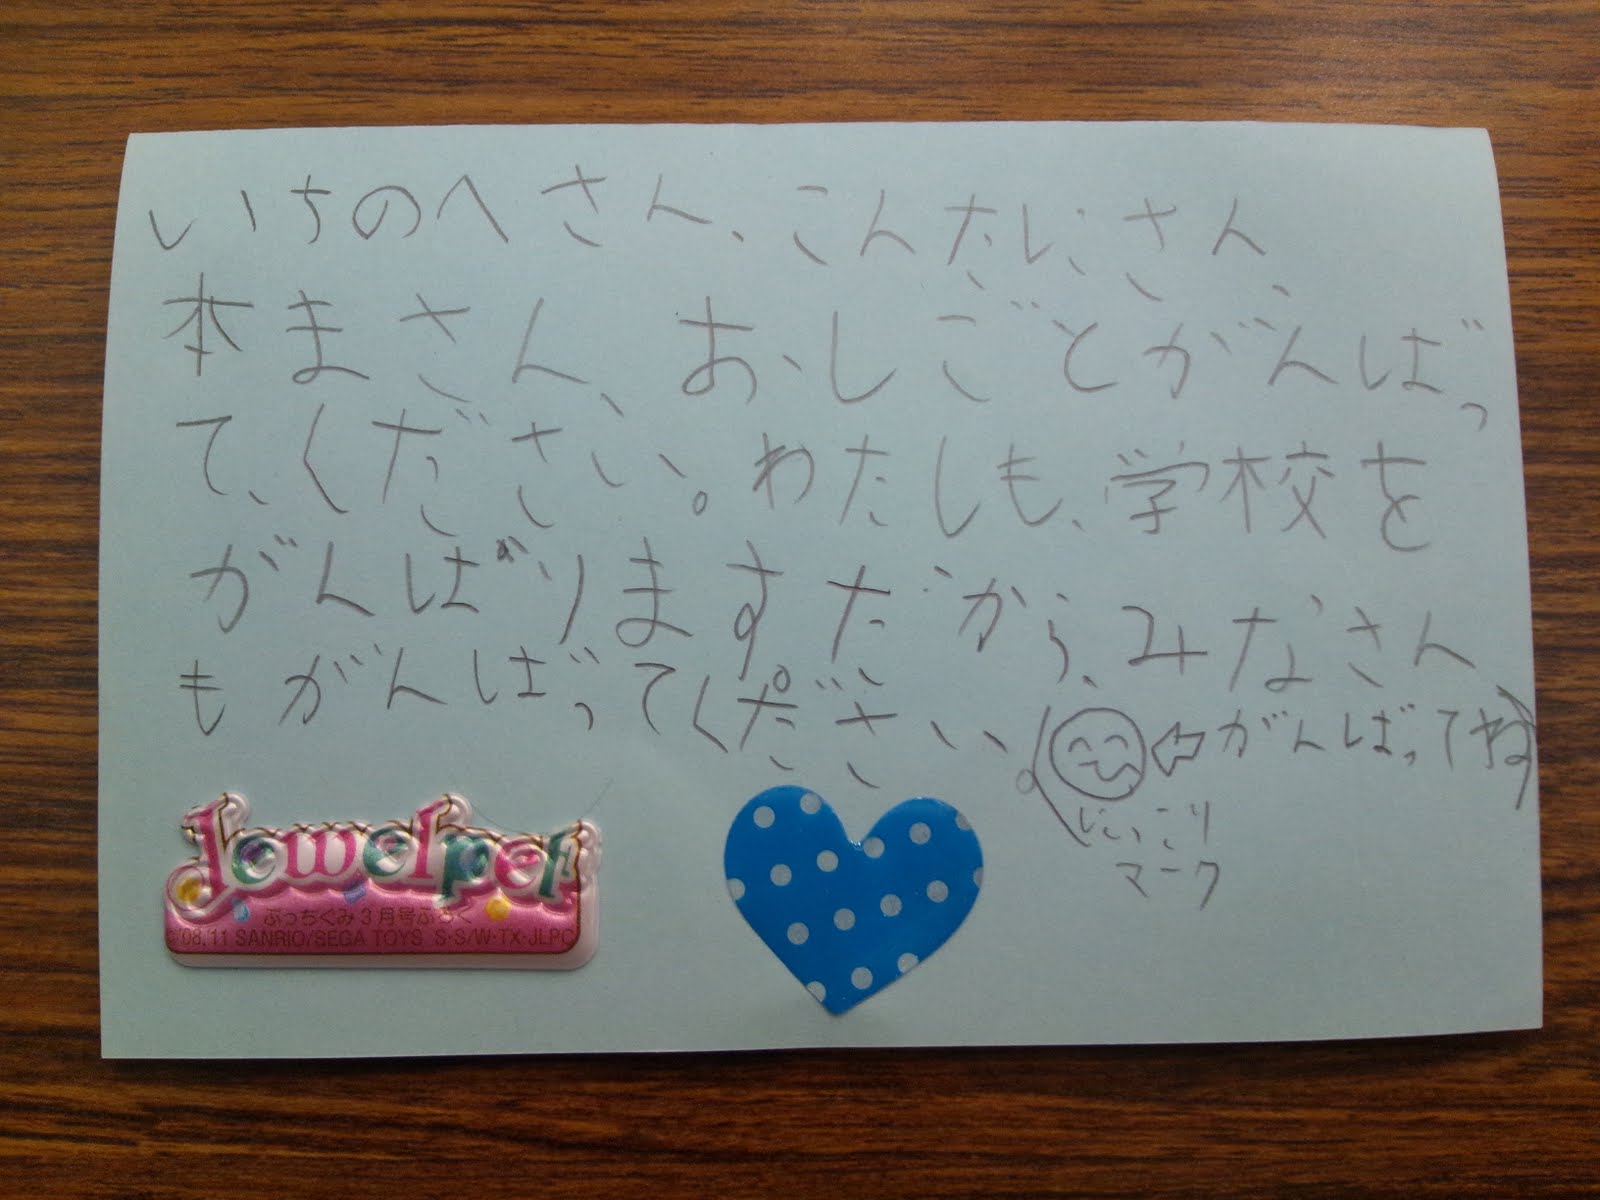 いちのへさん、こんたいさん、
本まさん、おしごとがんばっ
て、ください。わたしも、学校を
がんばります。だから、みなさん
もがんばってください。
がんばってね
にっこり
マーク
Jewelpet
ぷっちぐみ3月号ふろく
©'08,'11 SANRIO/SEGA TOYS S・S/W・TX・JLPC